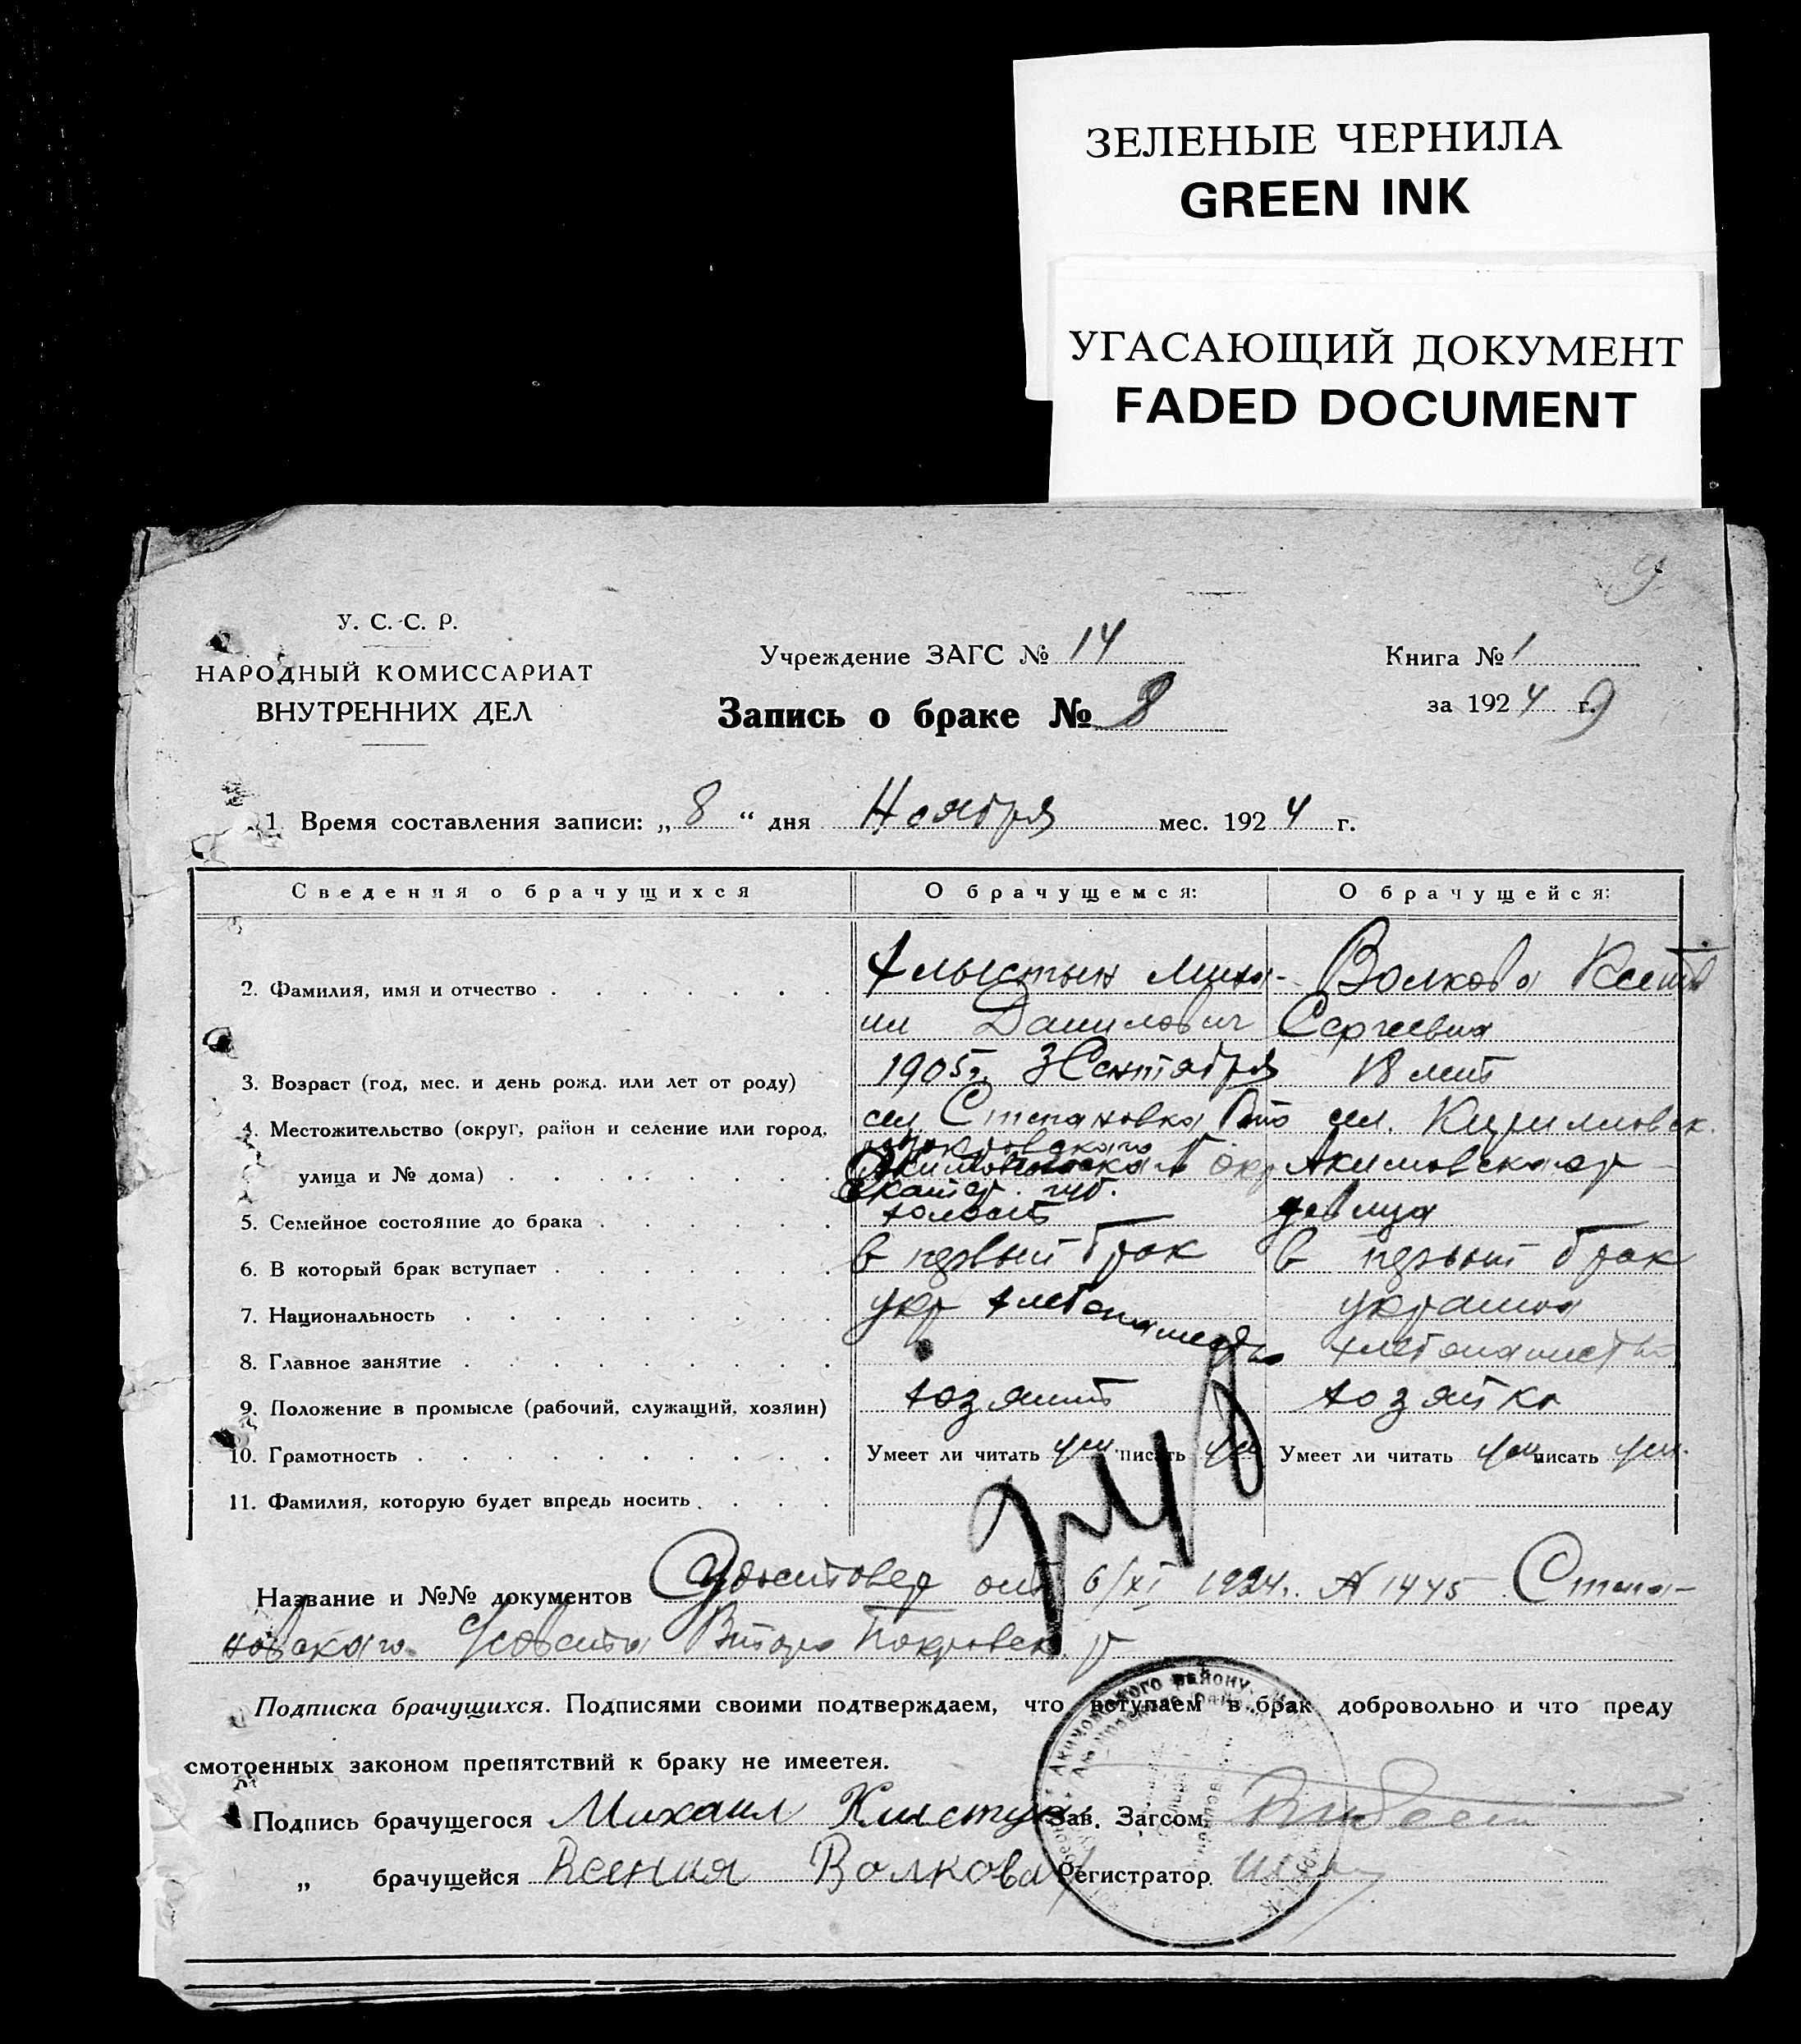 ЗЕЛЕНЫЕ ЧЕРНИЛА
GREEN INK
УГАСАЮЩИЙ ДОКУМЕНТ
FADED DOCUMENT
9
У. С. С. Р.
НАРОДНЫЙ КОМИССАРИАТ
ВНУТРЕННИХ ДЕЛ
Учреждение ЗАГС № 14
Запись о браке № 8
Книга № 1
за 1924 г.
9
1. Время составления записи: „8“ дня Ноября мес. 1924 г.
Сведения о брачущихся О брачущемся: О брачущейся:
2. Фамилия, имя и отчество Миха- Волкова
ил Данилович Сергеевна
3. Возраст (год, мес. и день рожд. или лет от роду) 1905 г. 3 Сентября 18 лет
4. Местожительство (округ, район и селение или город, сел. Степановка сел. Кирилловск.
улица и № дома) окр Акимовского р
Екатер. губ.
5. Семейное состояние до брака холост девица
6. В который брак вступает в первый брак в первый брак
7. Национальность укр хлебопашество
8. Главное занятие хлебопашество
9. Положение в промысле (рабочий, служащий, хозяин) хозяин хозяйка
10. Грамотность Умеет ли читать ум. писать ум Умеет ли читать ум писать ум.
11. Фамилия, которую будет впредь носить
Название и №№ документов Удостовер от 6/XI 1924. № 1445 Степа-
новского Второ Покровск. р
Подписка брачущихся. Подписями своими подтверждаем, что вступаем в брак добровольно и что преду
смотренных законом препятствий к браку не имеетея.
Подпись брачущегося Михаил Зав. Загсом
„ брачущейся Ксения Волкова Регистратор
Акимовского району